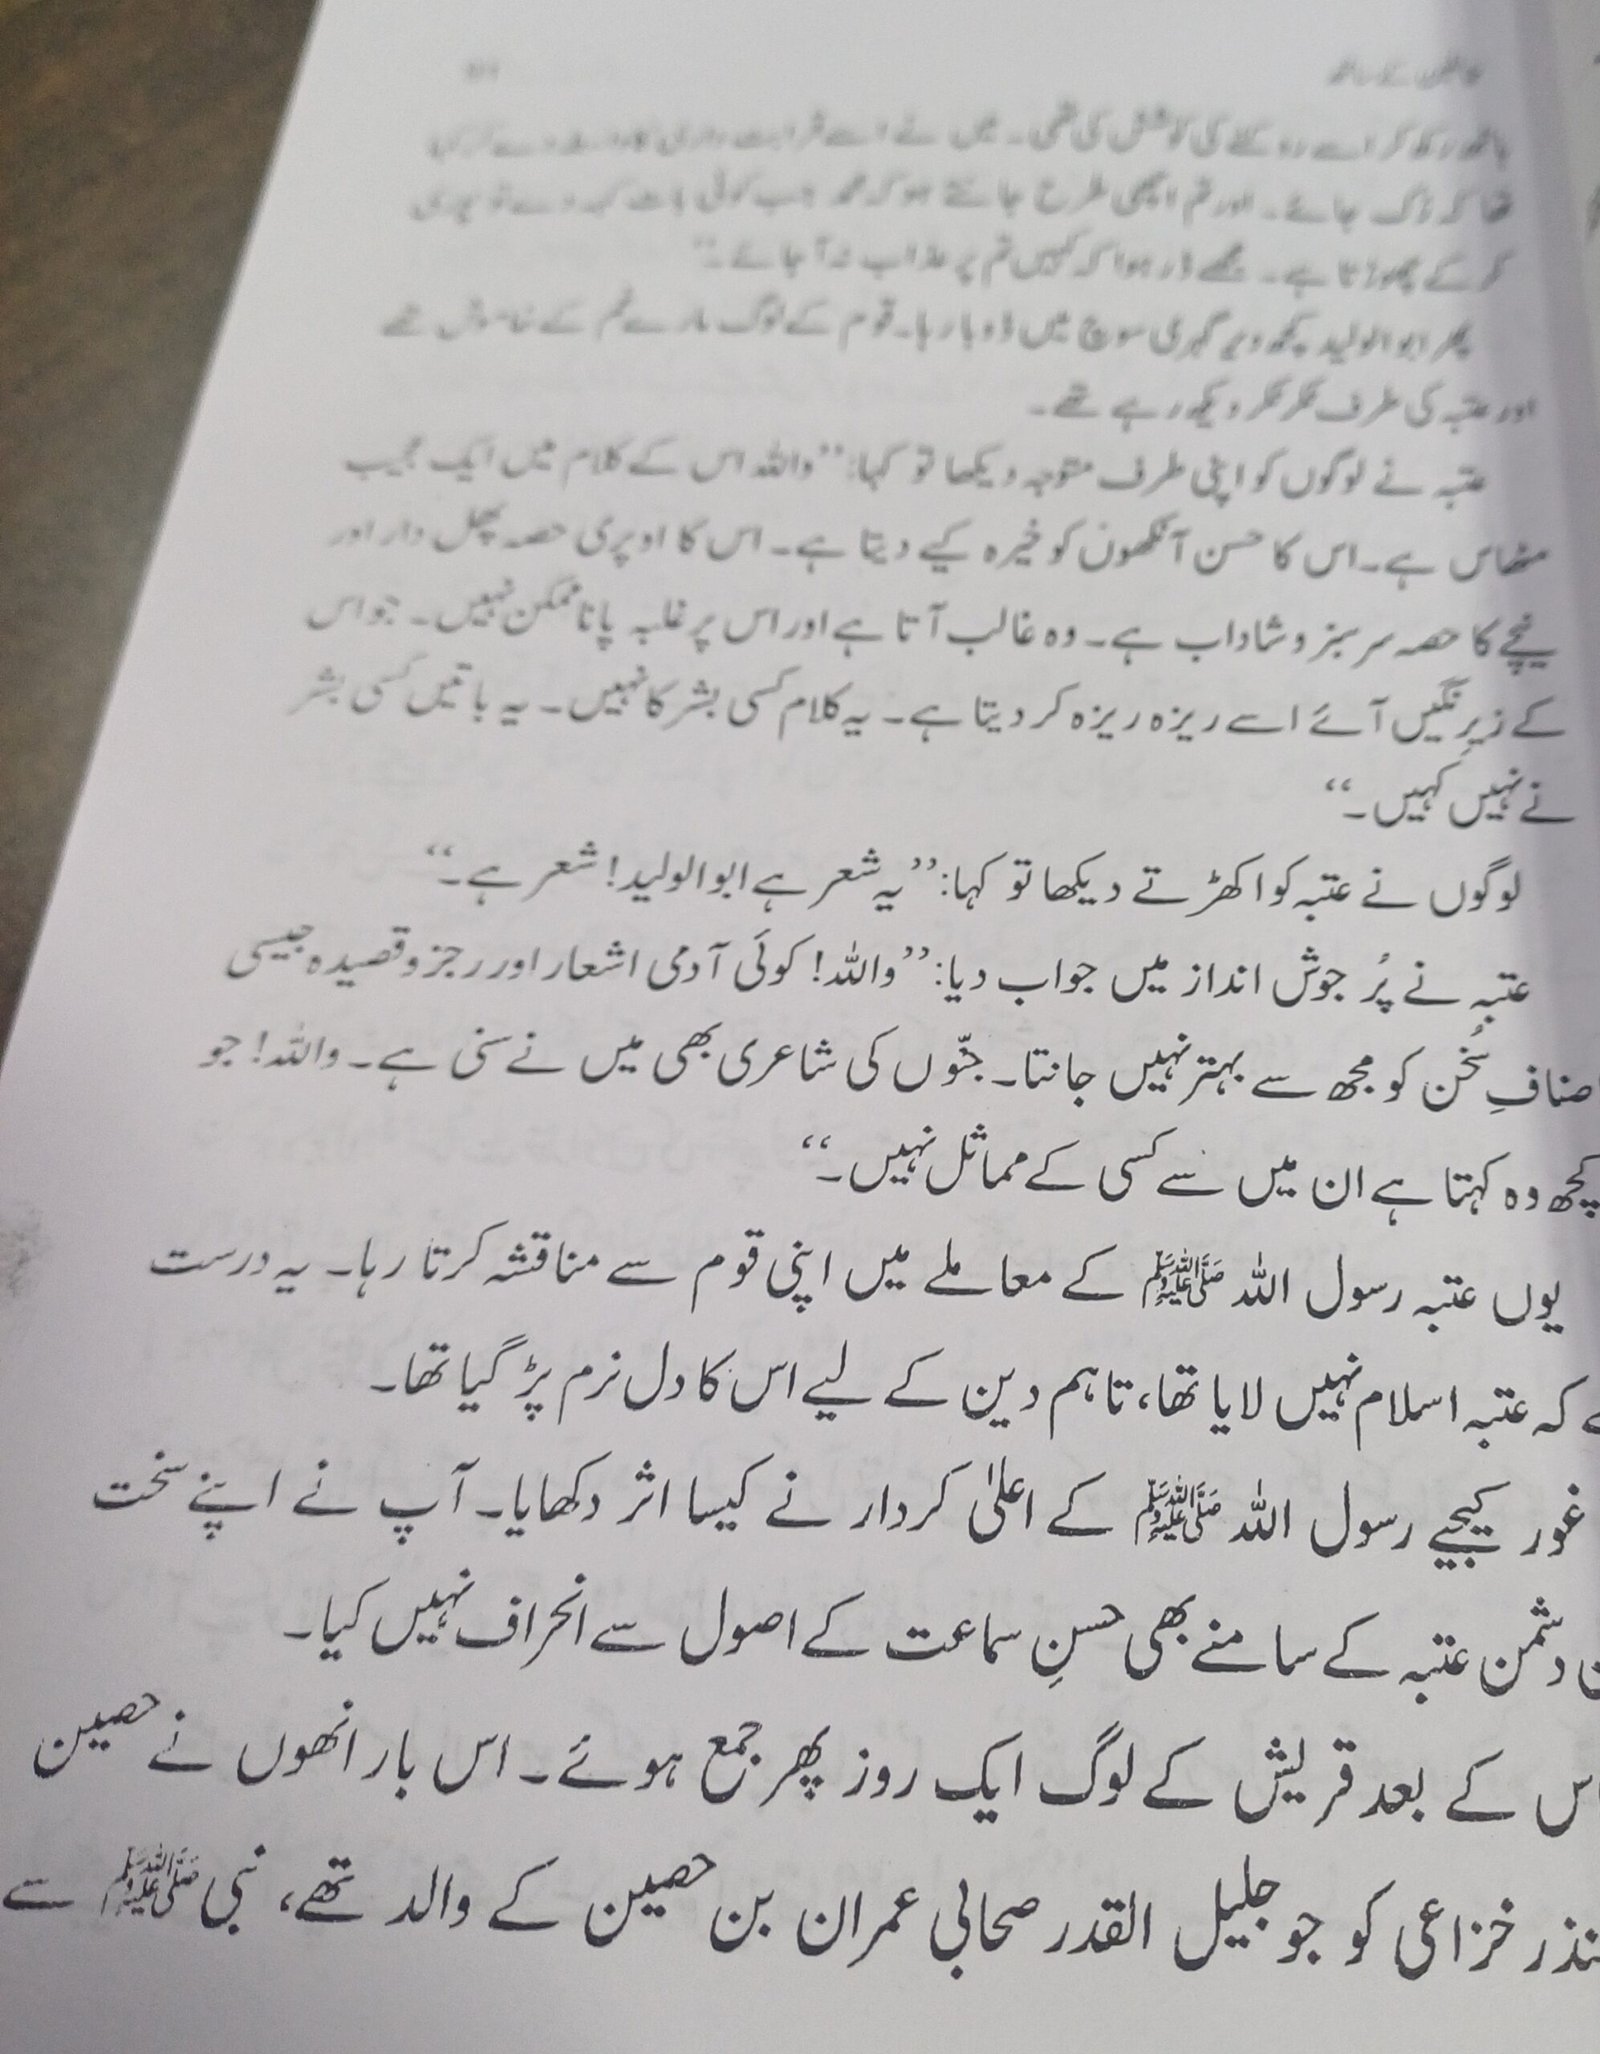 ہاتھ رکھ کر اسے روکنے کی کوشش کی تھی۔ میں نے اسے قرابت داری کا واسطہ دے کر کہا
تھا کہ رُک جائے۔ اور تم اچھی طرح جانتے ہو کہ محمد جب کوئی بات کہہ دے تو پوری
کر کے چھوڑتا ہے۔ مجھے ڈر ہوا کہ کہیں تم پر عذاب نہ آ جائے۔“
پھر ابوالولید کچھ دیر گہری سوچ میں ڈوبا رہا۔ قوم کے لوگ مارے غم کے خاموش تھے
اور عتبہ کی طرف ٹکر ٹکر دیکھ رہے تھے۔
عتبہ نے لوگوں کو اپنی طرف متوجہ دیکھا تو کہا: ”واللہ اس کے کلام میں ایک عجیب
مٹھاس ہے۔ اس کا حسن آنکھوں کو خیرہ کیے دیتا ہے۔ اس کا اوپری حصہ پھل دار اور
نیچے کا حصہ سرسبز و شاداب ہے۔ وہ غالب آتا ہے اور اس پر غلبہ پانا ممکن نہیں۔ جو اس
کے زیرِ نگیں آئے اسے ریزہ ریزہ کر دیتا ہے۔ یہ کلام کسی بشر کا نہیں۔ یہ باتیں کسی بشر
نے نہیں کہیں۔“
لوگوں نے عتبہ کو اکھڑتے دیکھا تو کہا: ”یہ شعر ہے ابوالولید! شعر ہے۔“
عتبہ نے پُر جوش انداز میں جواب دیا: ”واللہ! کوئی آدمی اشعار اور رجز و قصیدہ جیسی
صنافِ سُخن کو مجھ سے بہتر نہیں جانتا۔ جنّوں کی شاعری بھی میں نے سنی ہے۔ واللہ! جو
کچھ وہ کہتا ہے ان میں سے کسی کے مماثل نہیں۔“
یوں عتبہ رسول اللہ ﷺ کے معاملے میں اپنی قوم سے مناقشہ کرتا رہا۔ یہ درست
ے کہ عتبہ اسلام نہیں لایا تھا، تاہم دین کے لیے اس کا دل نرم پڑ گیا تھا۔
غور کیجیے رسول اللہ ﷺ کے اعلیٰ کردار نے کیسا اثر دکھایا۔ آپ نے اپنے سخت
ن دشمن عتبہ کے سامنے بھی حسنِ سماعت کے اصول سے انحراف نہیں کیا۔
اس کے بعد قریش کے لوگ ایک روز پھر جمع ہوئے۔ اس بار انھوں نے حصین
نذر خزاعی کو جو جلیل القدر صحابی عمران بن حصین کے والد تھے، نبی ﷺ سے